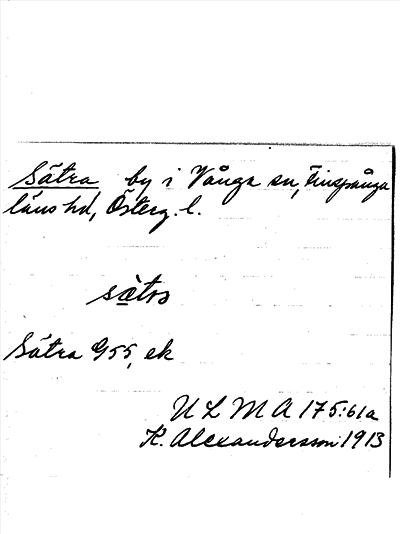 Sätra by i Vånga sn, Finspånga
läns hd, Österg. l.
Sätra G55, ek
U L M A 175:61a
K. Alexandersson 1913